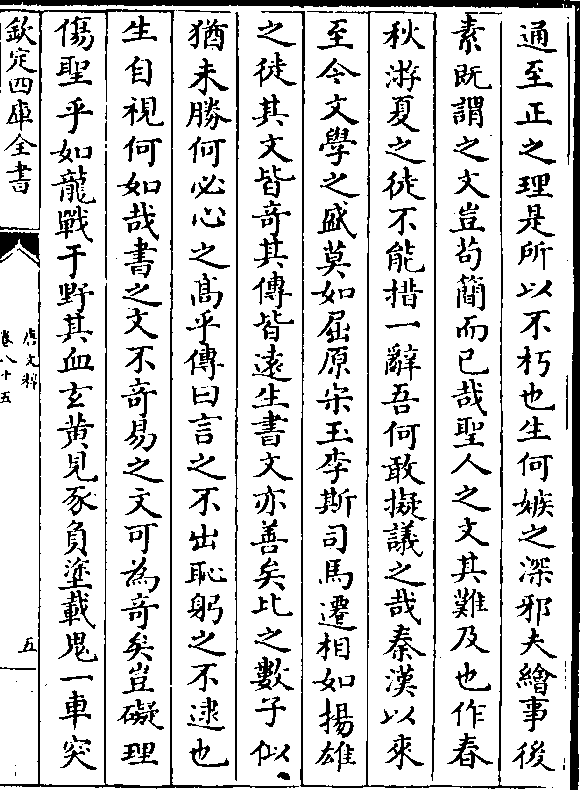 通至正之理是所以不朽也生何嫉之深邪夫繪事後
素既謂之文豈苟簡而已哉聖人之文其難及也作春
秋游夏之徒不能措一辭吾何敢擬議之哉秦漢以來
至今文學之盛莫如屈原宋玉李斯司馬遷相如揚雄
之徒其文皆奇其傳皆遠生書文亦善矣比之數子似
猶未勝何必心之高乎傳曰言之不出恥躬之不逮也
生自視何如哉書之文不奇易之文可為奇矣豈礙理
傷聖乎如龍戰于野其血玄黄見豕負塗載鬼一車突
欽定四庫全書
唐文粹
卷八十五
五